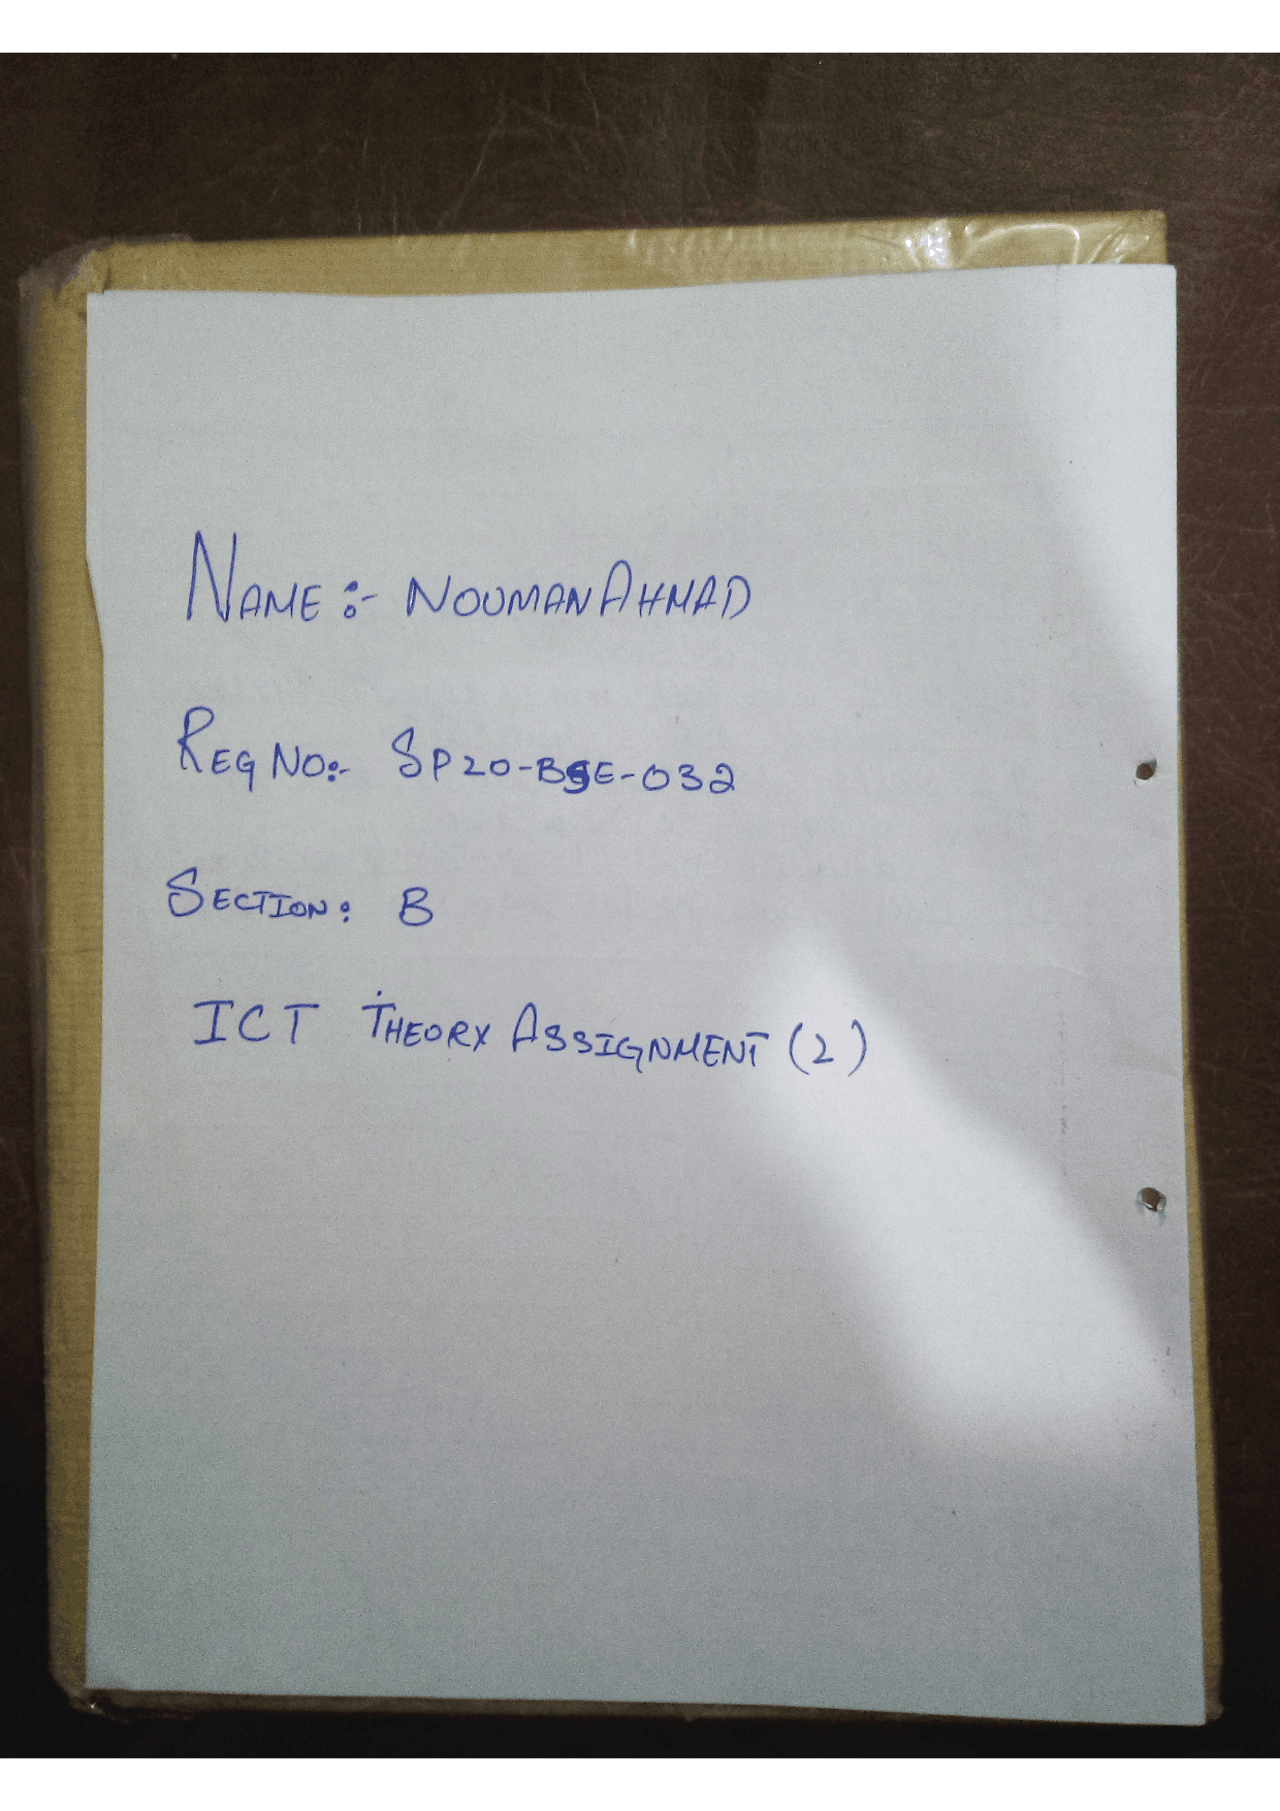 NAME :- NOUMAN AHMAD
REG NO:- SP20-BSE-032
SECTION: B
ICT THEORY ASSIGNMENT (2)